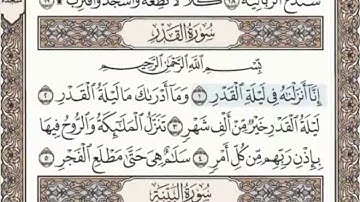 سَنَدْعُ ٱلزَّبَانِيَةَ ١٨ كَلَّا لَا تُطِعْهُ وَٱسْجُدْ وَٱقْتَرِب ۩ ١٩
سُورَةُ ٱلْقَدْرِ
بِسْمِ ٱللَّهِ ٱلرَّحْمَٰنِ ٱلرَّحِيمِ
إِنَّآ أَنزَلْنَٰهُ فِى لَيْلَةِ ٱلْقَدْرِ ١ وَمَآ أَدْرَىٰكَ مَا لَيْلَةُ ٱلْقَدْرِ ٢
لَيْلَةُ ٱلْقَدْرِ خَيْرٌ مِّنْ أَلْفِ شَهْرٍ ٣ تَنَزَّلُ ٱلْمَلَٰٓئِكَةُ وَٱلرُّوحُ فِيهَا
بِإِذْنِ رَبِّهِم مِّن كُلِّ أَمْرٍ ٤ سَلَٰمٌ هِىَ حَتَّىٰ مَطْلَعِ ٱلْفَجْرِ ٥
سُورَةُ ٱلْبَيِّنَةِ